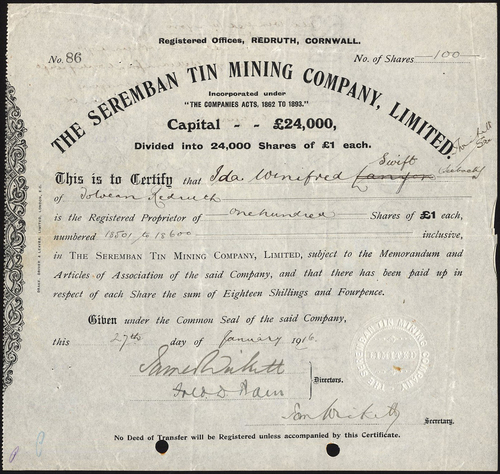 Registered Offices, REDRUTH, CORNWALL.
No. 86
No. of Shares 100
THE SEREMBAN TIN MINING COMPANY, LIMITED.
Incorporated under
"THE COMPANIES ACTS, 1862 TO 1893."
Capital - - £24,000,
Divided into 24,000 Shares of £1 each.
Swift
This is to Certify that Ida Winefred
of Tolvean Redruth
is the Registered Proprietor of One hundred Shares of £1 each,
numbered 18501 to 18600 inclusive,
in THE SEREMBAN TIN MINING COMPANY, LIMITED, subject to the Memorandum and
Articles of Association of the said Company, and that there has been paid up in
respect of each Share the sum of Eighteen Shillings and Fourpence.
Given under the Common Seal of the said Company,
this 27th day of January 1916
Directors.
Secretary.
No Deed of Transfer will be Registered unless accompanied by this Certificate.
THE SEREMBAN TIN MINING COMPANY
LIMITED